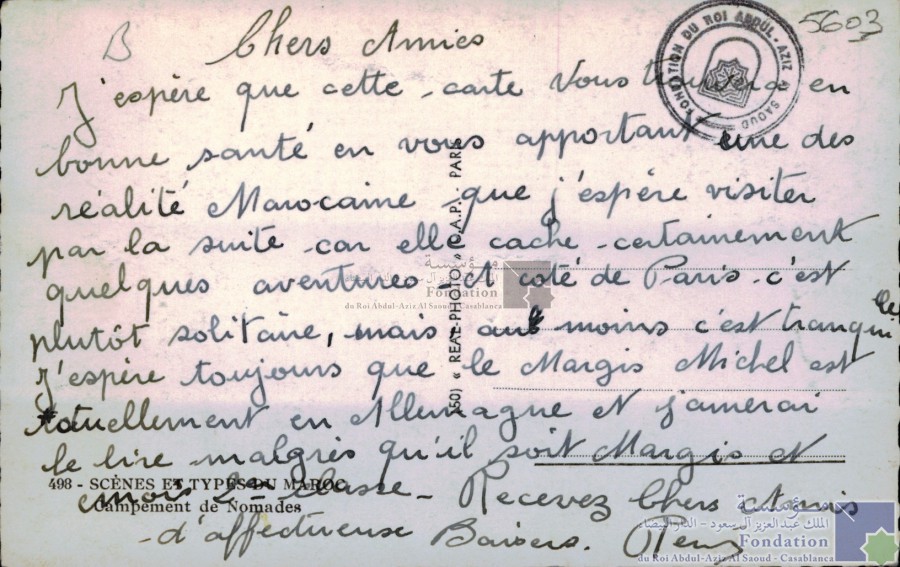 B
5603
Chers Amies
FONDATION DU ROI ABDUL-AZIZ AL SAOUD
J'espère que cette carte vous trouvera en
bonne santé en vous apportant une des
réalité Marocaine que j'espère visiter
par la suite car elle cache certainement
quelques aventures. A coté de Paris c'est
plutôt solitaire, mais au moins c'est tranquille
J'espère toujours que le Margis Michel est
actuellement en Allemagne et j'amerai
le lire malgrès qu'il soit Margis et
mois 2e classe - Recevez Chers Amis
d'affectueuse Baisers. Remy
(50) « REAL-PHOTO » C.A.P. PARIS
498 - SCÈNES ET TYPES DU MAROC
Campement de Nomades
مؤسسة
الملك عبد العزيز آل سعود - الدار البيضاء
Fondation
du Roi Abdul-Aziz Al Saoud - Casablanca
مؤسسة
الملك عبد العزيز آل سعود - الدار البيضاء
Fondation
du Roi Abdul-Aziz Al Saoud - Casablanca